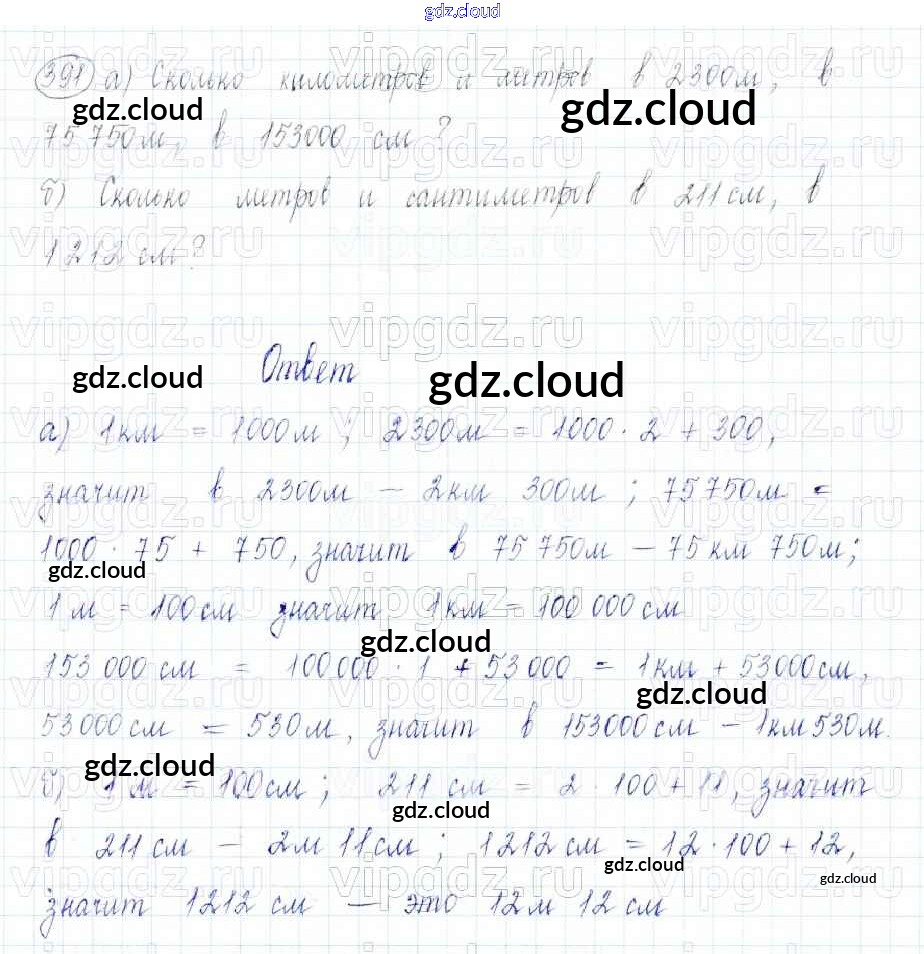 gdz.cloud
391 а) Сколько километров и метров в 2300м, в
gdz.cloud gdz.cloud
75 750м, в 153000 см?
б) Сколько метров и сантиметров в 211 см, в
1212 см?
vipgdz.ru vipgdz.ru vipgdz.ru
Ответ
gdz.cloud gdz.cloud
а) 1км = 1000м ; 2300м = 1000 · 2 + 300,
значит в 2300м – 2км 300м ; 75 750м =
1000 · 75 + 750, значит в 75 750м – 75 км 750м;
gdz.cloud
1 м = 100 см значит 1км = 100 000 см
gdz.cloud
153 000 см = 100 000 · 1 + 53 000 = 1км + 53000см,
gdz.cloud
53 000 см = 530м, значит в 153000см – 1км 530м.
gdz.cloud
б) 1 м = 100см ; 211 см = 2 · 100 + 11, значит
gdz.cloud
в 211 см – 2м 11см ; 1212 см = 12 · 100 + 12,
gdz.cloud gdz.cloud
значит 1212 см – это 12м 12 см